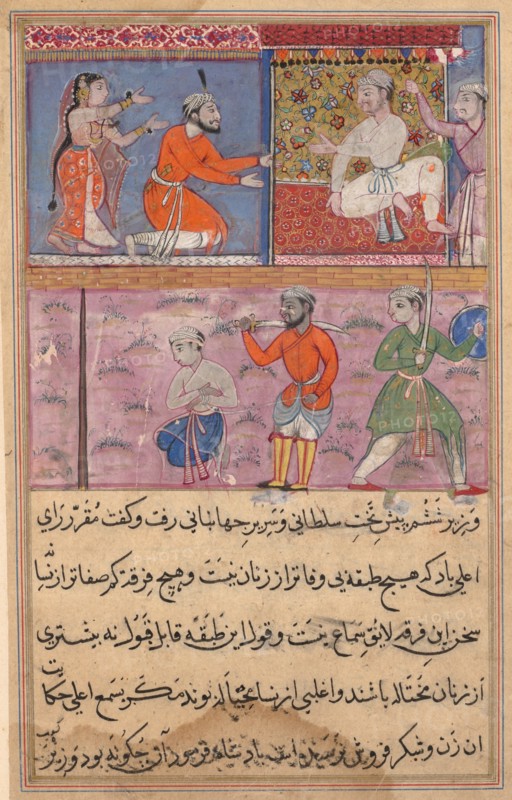 وزیر ششم پیش تخت سلطانی و سریر جهانبانی رفت و گفت مقرّر رای
اعلی باد که هیچ طبقه بی وفا تر از زنان نیست و هیچ فرقه کم صفا تر از نسا نه
سخن این فرقه لایق سماع نیست و قول این طبقه قابل قبول نه بیشتری
از زنان محتاله باشند و اغلبی از نسا بوند مکر بسمع اعلی حکایت
ان زن و شکر فروش نرسیده است پادشاه فرمود آن چگونه بود وزیر گفت